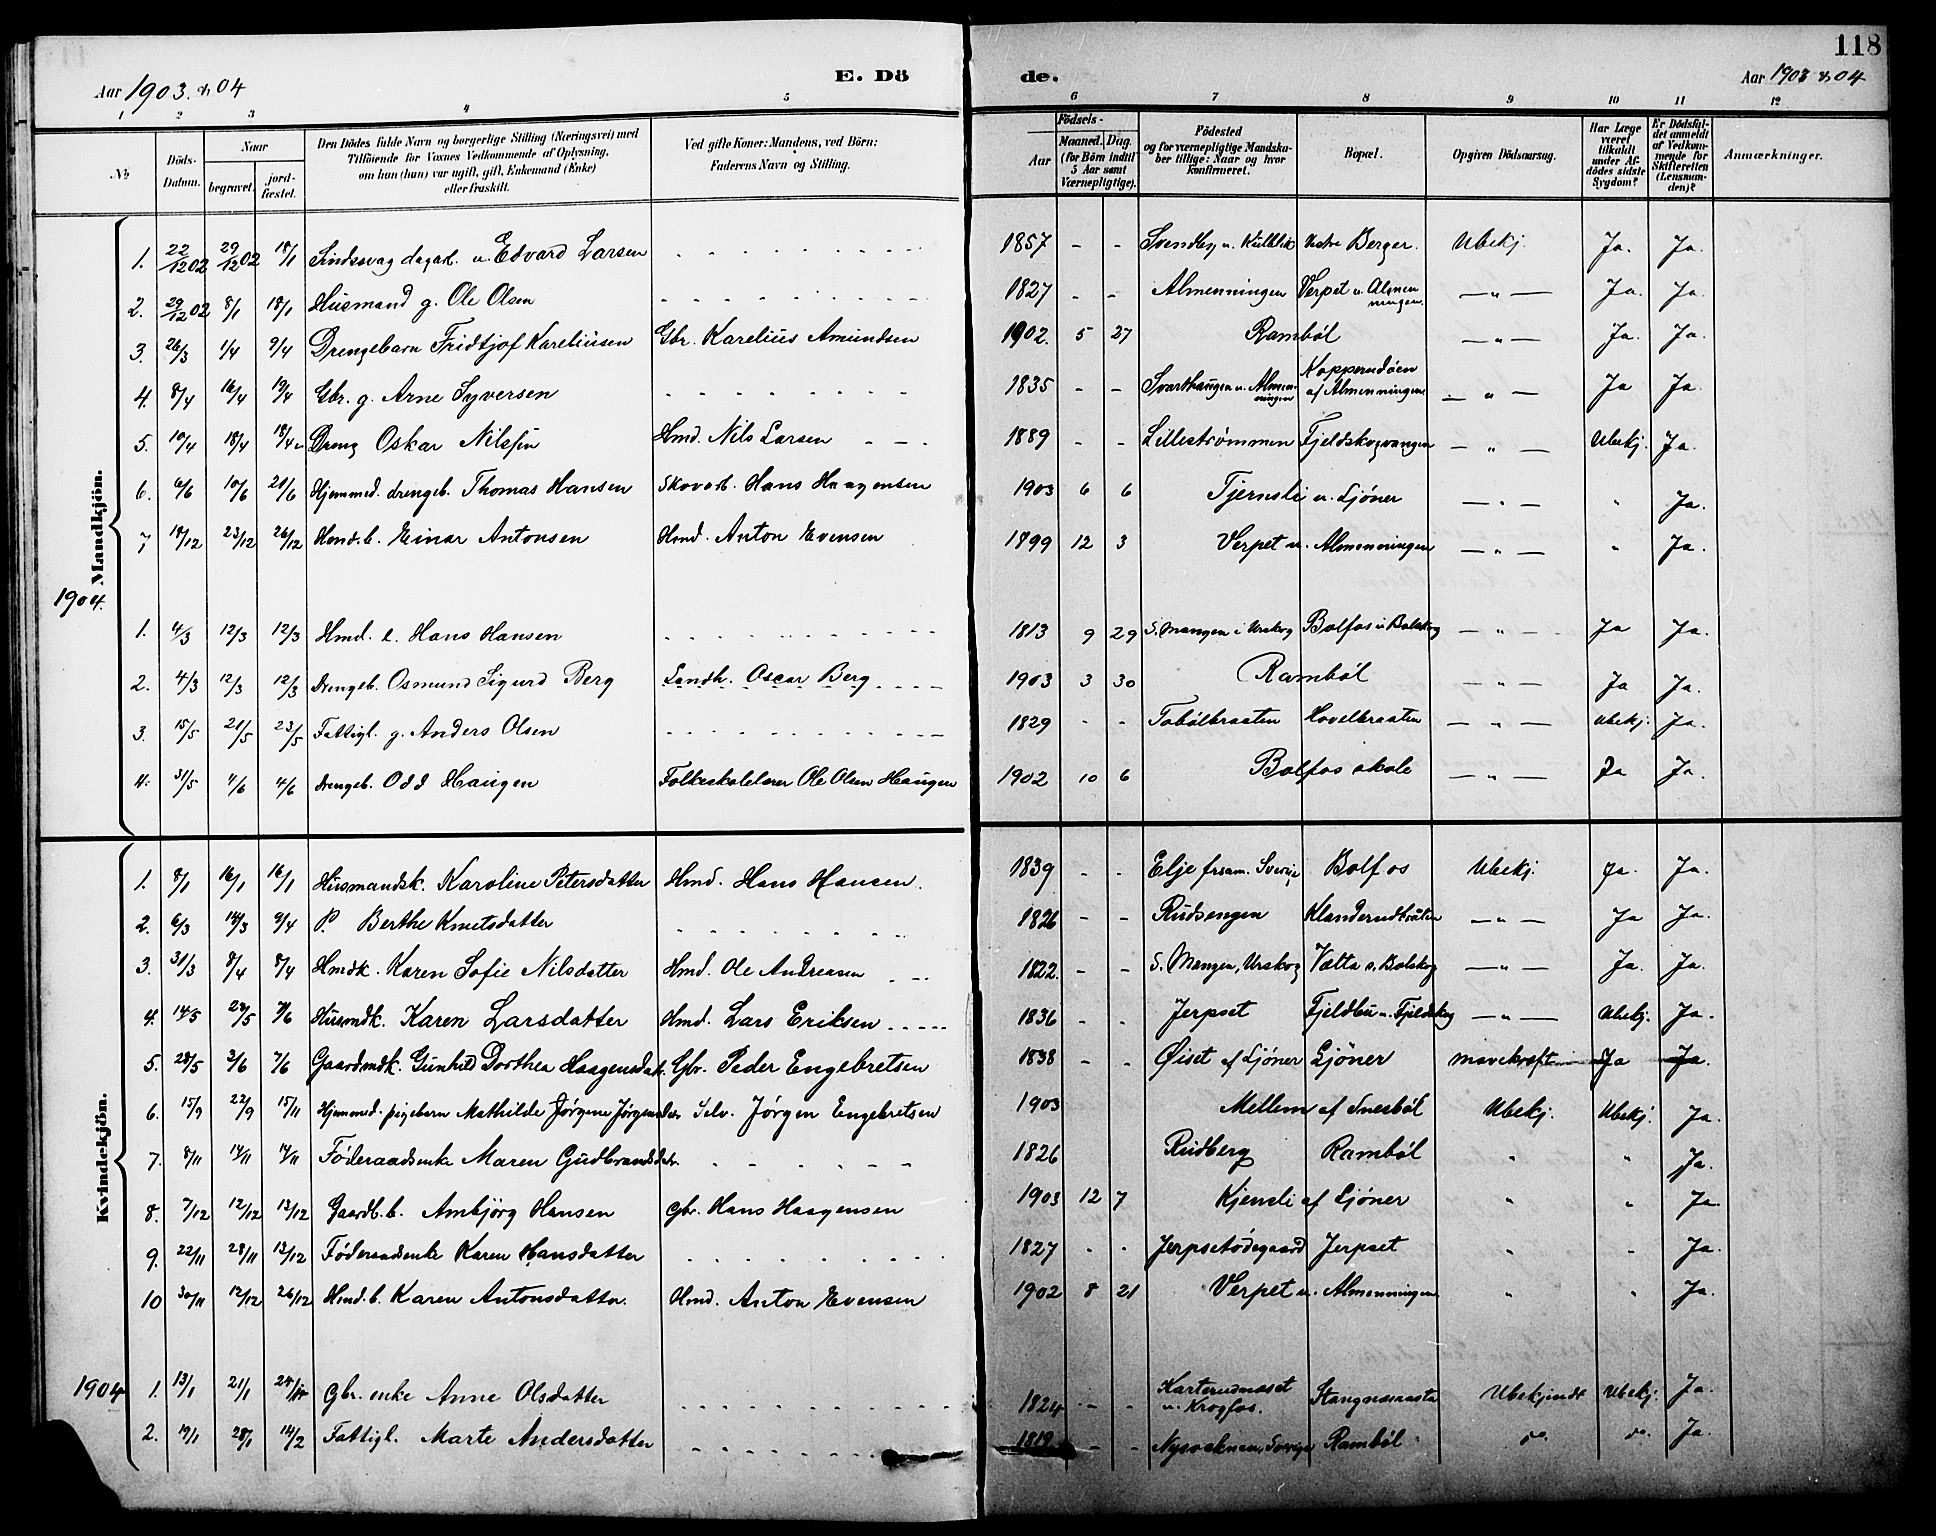 118
Aar 1903 & 04
E. Dö
de.
Aar 1903 & 04
1 2 3 4 5 6 7 8 9 10 11 12
No
Döds-Datum.
Naar
begravet.
jord-fæstet.
Den Dödes fulde Navn og borgerlige Stilling (Næringsvei) med
Tilföiende for Voxnes Vedkommende af Oplysning,
om han (hun) var ugift, gift, Enkemand (Enke)
eller fraskilt.
Ved gifte Koner: Mandens, ved Börn:
Faderens Navn og Stilling.
Födsels-
Aar
Maaned. Dag.
(for Börn indtil
5 Aar samt
Værnepligtige).
Födested
og for værnepligtige Mandska-
ber tillige: Naar og hvor
konfirmeret.
Bopæl.
Opgiven Dödsaarsag.
Har Læge
været
tilkaldt
under Af-
dödes sidste
Sygdom?
Er Dödsfal-
det anmeldt
af Vedkom-
mende for
Skifteretten
(Lensman-
den)?
Anmærkninger.
Mandkjön.
1. 22/12 02 29/12 02 18/1 Sindssvag dagarb. u. Edvard Larsen 1857 - - Svendby u. Kulblik Vestre Berger. Ubekj. Ja. Ja.
2. 29/12 02 8/1 18/1 Husmand g. Ole Olsen 1827 - - Almenningen Verpet u. Almenningen — " — Ja. Ja.
3. 26/3 1/4 9/4 Drengebarn Fridtjof Kareliusen Gbr. Karelius Amundsen 1902. 5 27 Rambøl — " — Ja. Ja.
4. 8/4 16/4 19/4 Gbr. g. Arne Syversen 1835 - - Svarthaugen u. Almenningen Kopperudøen af Almenningen — " — Ja Ja.
5. 10/4 18/4 18/4 Dreng Oskar Nilssen Hmd. Nils Larsen 1889 - - Lillestrømmen Fjeldskogvangen — " — Ubekj. Ja.
6. 6/6 10/6 21/6 Hjemmed. drengeb. Thomas Hansen Skovarb. Hans Haagensen 1903 6 6 Tjernsli u. Ljöner — " — " Ja.
7 18/12 23/12 26/12 Hmd. b. Einar Antonsen Hmd. Anton Evensen 1899 12 3 Verpet u. Almenningen — " — " Ja.
1904.
1. 4/3 12/3 12/3 Hmd. e. Hans Hansen 1813 9 29 S. Mangen i Urskog Bolfos u Bolskog — " — Ja Ja.
2. 4/3 12/3 12/3 Drengeb. Osmund Sigurd Berg Landh. Oscar Berg 1903 3 30 Rambøl — " — Ja Ja.
3. 15/5 21/5 23/5 Fattigl. g. Anders Olsen 1829 - - Tobölbraaten Hovelbraaten — " — Ubekj. Ja.
4. 31/5 4/6 4/6 Drengeb. Odd Haugen Folkeskolelærer Ole Olsen Haugen 1902 10 6 Bolfos skole — " — Ja Ja.
Kvindekjön.
1. 8/1 16/1 16/1 Husmandsk. Karoline Petersdatter Hmd. Hans Hansen. 1839 - - Elje frsam. Sverige Bolfos Ubekj. Ja. Ja.
2. 6/3 14/3 9/4 P. Berthe Knutsdatter 1826 - - Rudsengen Klanderudbråten — " — Ja Ja.
3. 31/3 8/4 8/4 Hmdk. Karen Sofie Nilsdatter Hmd. Ole Andreasen 1822. - - S. Mangen, Urskog Valta s. Bolskog — " — Ja. Ja.
4. 14/5 23/5 7/6 Husmdk. Karen Larsdatter Hmd. Lars Eriksen 1836 - - Jerpset Fjeldbu u. Fjeldskog — " — Ubekj. Ja.
5. 28/5 3/6 7/6 Gaardmdk. Gunhild Dorthea Haagensdatt. Gbr. Peder Engebretsen 1838 - - Øiset af Ljöner Ljöner mavekræft Ja Ja.
6. 15/9 22/9 15/11 Hjemmed. pigebarn Mathilde Jørgine Jørgensdtr. Selv. Jørgen Engebretsen 1903 Mellem af Snesböl Ubekj. Ubekj. Ja.
7. 8/11 14/11 14/11 Föderaadsenke Maren Gudbrandsdtr. 1826 Rudberg Ramböl " " Ja.
8. 7/12 12/12 13/12 Gaardb. b. Ambjörg Hansen Gbr. Hans Haagensen 1903 12 7 Kjensli af Ljöner " " Ja.
9. 22/11 28/11 13/12 Föderaadsenke Karen Hansdatter 1827 - - Jerpsetødegaard Jerpset " " Ja.
10 30/11 12/12 26/12 Hmd. b. Karen Antonsdatter. Hmd. Anton Evensen 1902 8 21 Verpet u. Almenningen " " Ja.
1904 1. 13/1 21/1 24/1 Gbr. enke Anne Olsdatter 1824 - - Karterudnæset u. Krogfos. Stangnæssæta Ubekjendt Ubekj. Ja.
2. 19/1 28/1 14/2 Fattigl. Marte Andersdatter 1819 - - Nysocknen, Sverige Ramböl do. do. Ja.